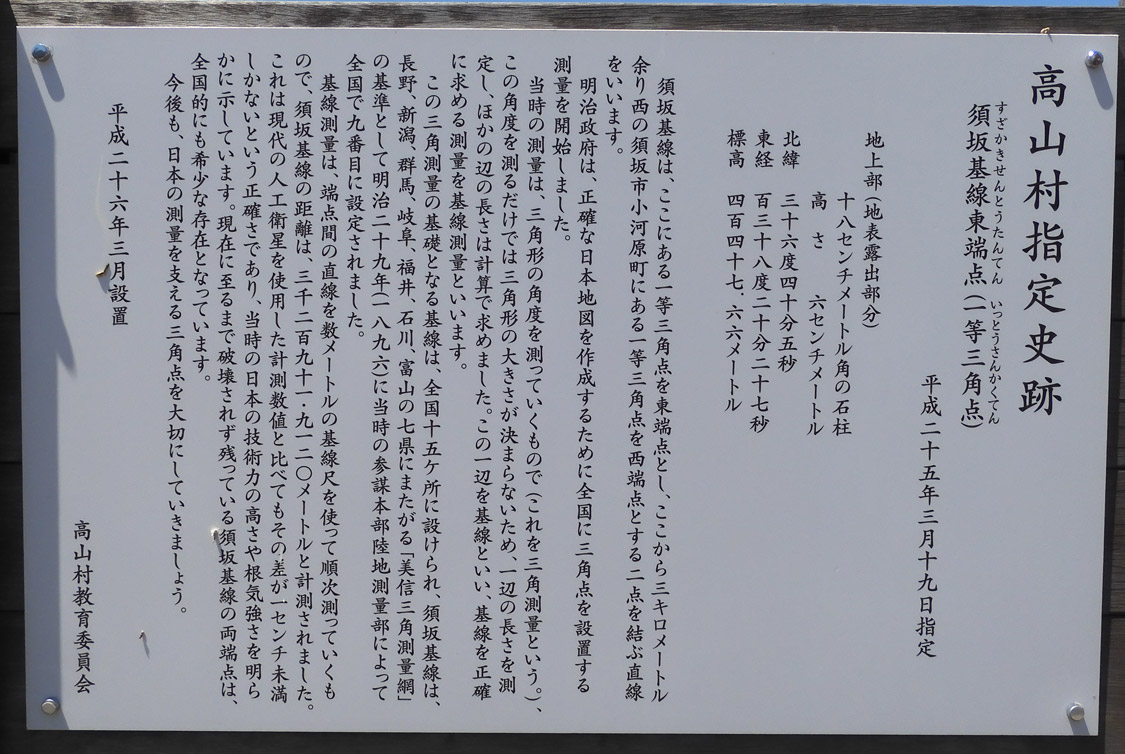 高山村指定史跡
すざかきせんとうたんてん いっとうさんかくてん
須坂基線東端点(一等三角点)
平成二十五年三月十九日指定
地上部(地表露出部分)
十八センチメートル角の石柱
高さ 六センチメートル
北緯 三十六度四十分五秒
東経 百三十八度二十分二十七秒
標高 四百四十七.六六メートル
須坂基線は、ここにある一等三角点を東端点とし、ここから三キロメートル
余り西の須坂市小河原町にある一等三角点を西端点とする二点を結ぶ直線
をいいます。
明治政府は、正確な日本地図を作成するために全国に三角点を設置する
測量を開始しました。
当時の測量は、三角形の角度を測っていくもので(これを三角測量という。)、
この角度を測るだけでは三角形の大きさが決まらないため、一辺の長さを測
定し、ほかの辺の長さは計算で求めました。この一辺を基線といい、基線を正確
に求める測量を基線測量といいます。
この三角測量の基礎となる基線は、全国十五ケ所に設けられ、須坂基線は、
長野、新潟、群馬、岐阜、福井、石川、富山の七県にまたがる「美信三角測量網」
の基準として明治二十九年(一八九六)に当時の参謀本部陸地測量部によって
全国で九番目に設定されました。
基線測量は、端点間の直線を数メートルの基線尺を使って順次測っていくも
ので、須坂基線の距離は、三千二百九十一・九一二〇メートルと計測されました。
これは現代の人工衛星を使用した計測数値と比べてもその差が一センチ未満
しかないという正確さであり、当時の日本の技術力の高さや根気強さを明ら
かに示しています。現在に至るまで破壊されず残っている須坂基線の両端点は、
全国的にも希少な存在となっています。
今後も、日本の測量を支える三角点を大切にしていきましょう。
平成二十六年三月設置
高山村教育委員会